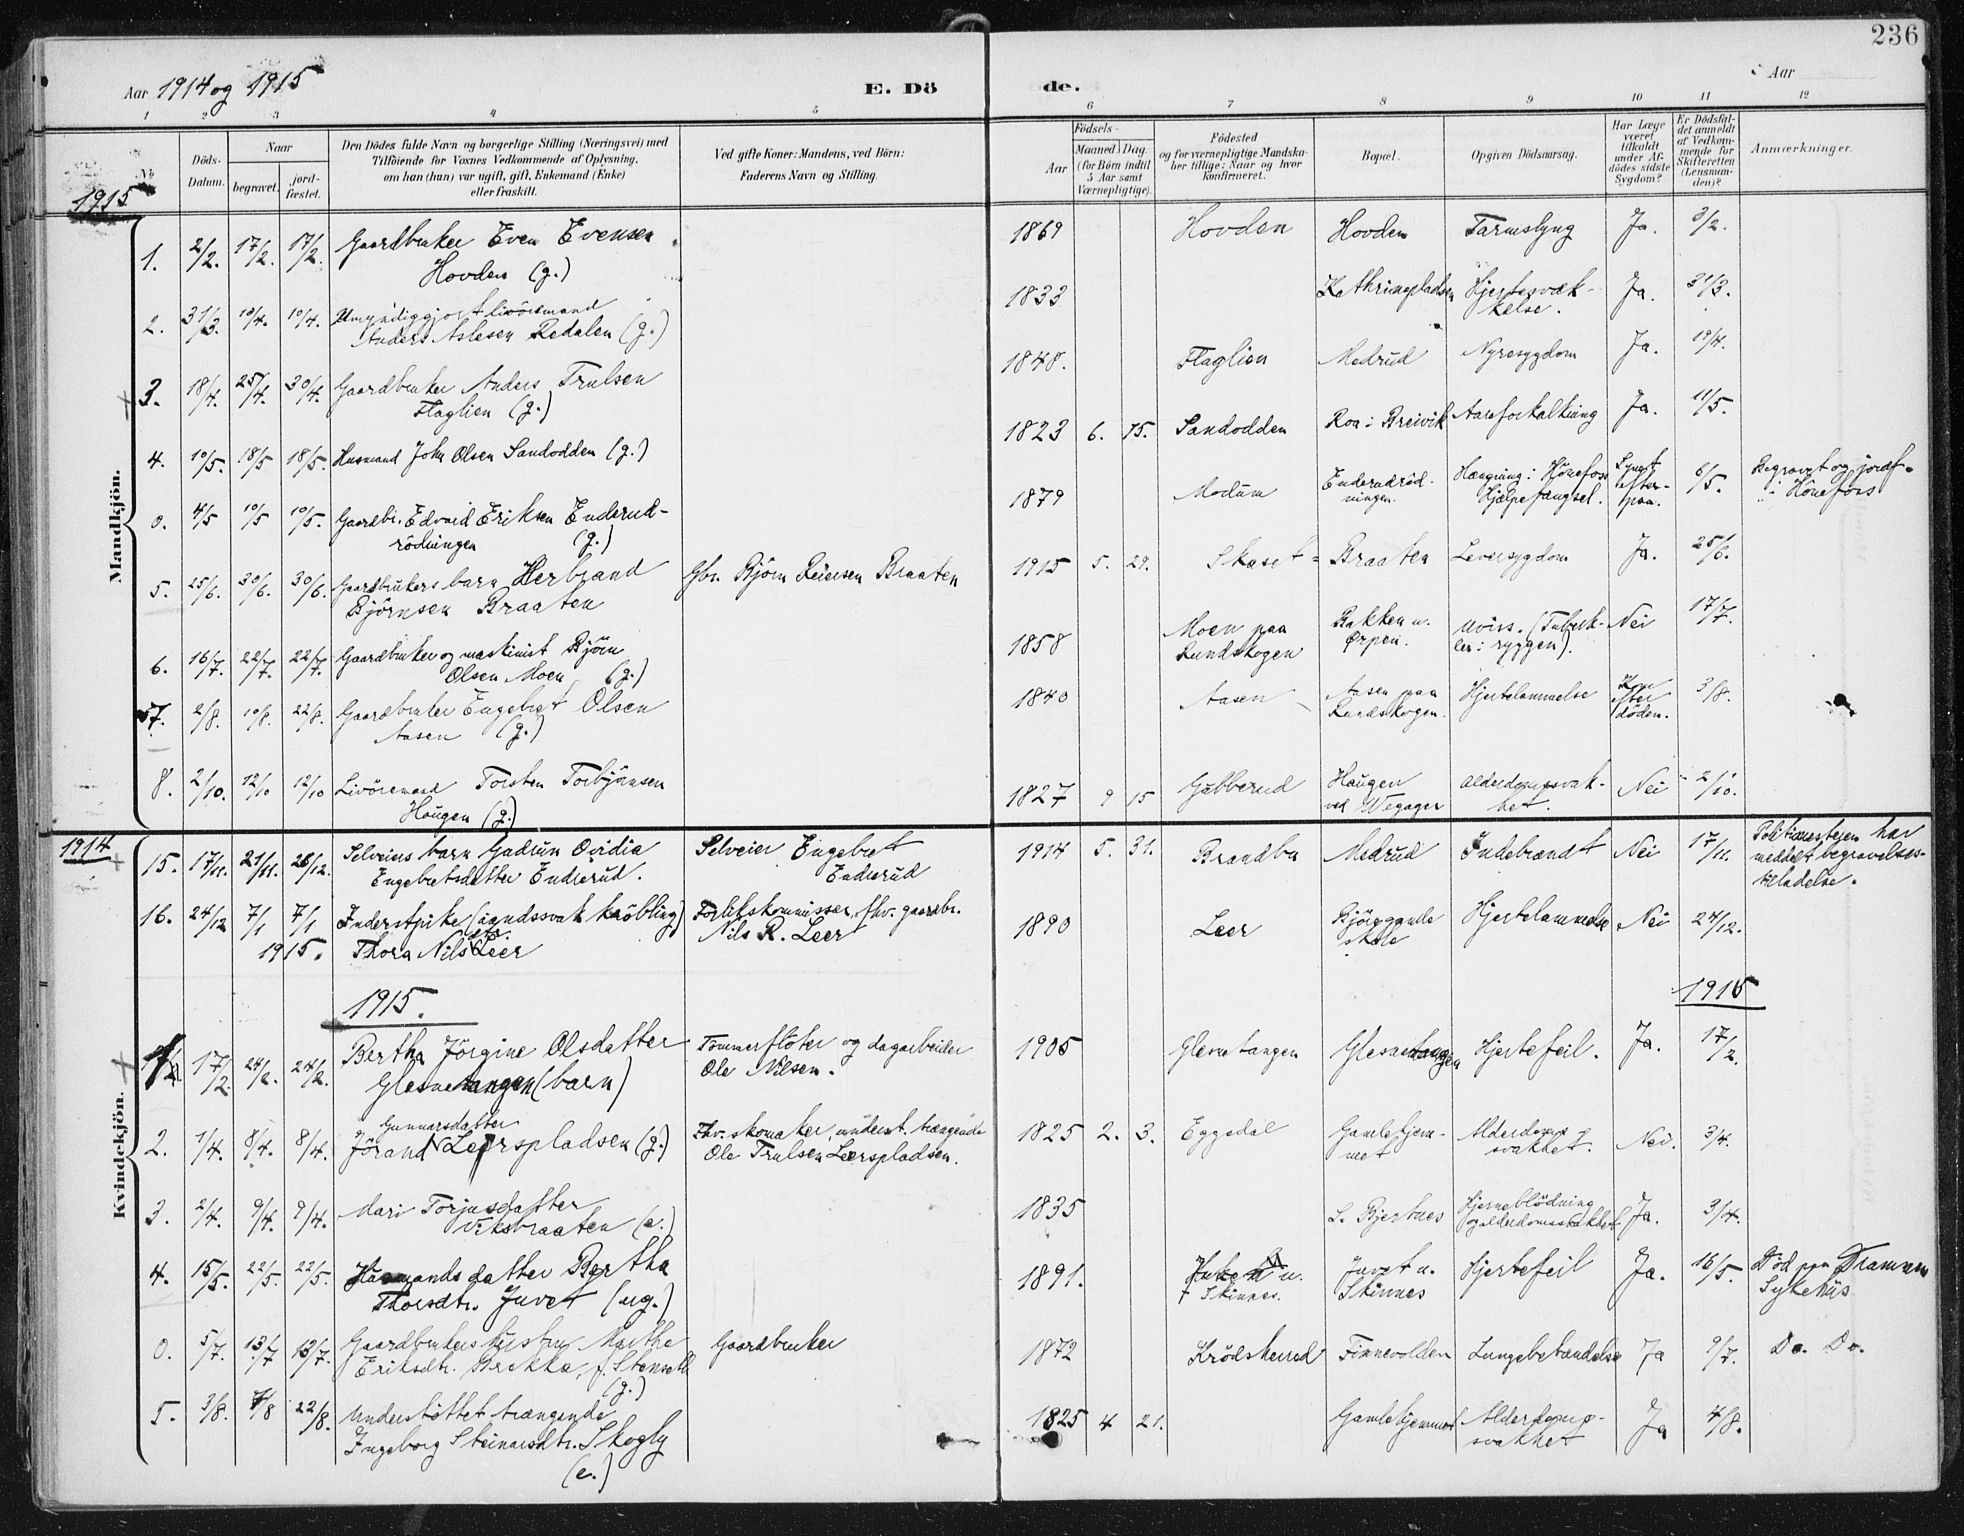 236
Aar 1914 og 1915
E. Dö
de.
Aar
1 2 3 4 5 6 7 8 9 10 11 12
No
Döds-
Datum.
Naar
begravet.
jord-
fæstet.
Den Dödes fulde Navn og borgerlige Stilling (Næringsvei) med
Tilföiende for Voxnes Vedkommende af Oplysning,
om han (hun) var ugift, gift, Enkemand (Enke)
eller fraskilt.
Ved gifte Koner: Mandens, ved Börn:
Faderens Navn og Stilling.
Födsels-
Aar
Maaned. Dag.
(for Börn indtil
5 Aar samt
Værnepligtige).
Födested
og for værnepligtige Mandska-
ber tillige: Naar og hvor
konfirmeret.
Bopæl.
Opgiven Dödsaarsag.
Har Læge
været
tilkaldt
under Af-
dödes sidste
Sygdom?
Er Dödsfal-
det anmeldt
af Vedkom-
mende for
Skifteretten
(Lensman-
den)?
Anmærkninger.
1915
Mandkjön.
1. 2/2. 17/2. 17/2. Gaardbruker Even Evensen
Hovden (g.)
1869 Hovden Hovden Tarmslyng Ja. 3/2.
2. 31/3. 10/4. 10/4. Umyndiggjort livöresmand
Anders Aslesen Redalen (g.)
1833 Kathrinepladsen Hjertesvæk-
kelse. Ja. 31/3.
3. 18/4. 25/4. 30/4. Gaardbruker Anders Trulsen
Flaglien (g.)
1848. Flaglien Medrud Nyresygdom Ja. 19/4.
4. 10/5. 18/5 18/5. Husmand John Olsen Sandodden (g.)
1823 6. 15. Sandodden Roa i Breivik Aareforkalkning Ja. 11/5.
0. 4/5 10/5 10/5. Gaardbr. Edvard Eriksen Enderud-
rödningen (g.)
1879 Modum Enderudröd-
ningen. Hængning i Hönefoss
Hjælpefængsel. Synet
efter-
paa. 6/5. Begravet og jordf.
i Hönefoss
5. 25/6. 30/6. 30/6. Gaardbrukers barn Herbrand
Björnsen Braaten
Gbr. Björn Reiersen Braaten
1915 5. 29. Skaset- Braaten Leversygdom Ja. 25/6.
6. 16/7. 22/7. 22/7. Gaardbruker og maskinist Björn
Olsen Moen (g.)
1858 Moen paa
Rundskogen Bakken u.
Ørpen. Uviss. (Tuberk-
ler i ryggen). Nei 17/7.
7. 2/8. 10/8. 22/8. Gaardbruker Engebret Olsen
Aasen (g.)
1840 Aasen Aasen paa
Rundskogen. Hjertelammelse Kom
efter
döden. 3/8.
8. 2/10. 12/10 12/10 Livöresmand Torsten Torbjörnsen
Haugen (g.)
1827 9 15 Gubberud Haugen
ved Wegager Alderdomssvak-
het. Nei 2/10.
1914
Kvindekjön.
15. 17/11. 21/11. 26/12. Selveiers barn Gudrun Ovidia
Engebretsdatter Enderud.
Selveier Engebret
Enderud
1914 5. 31. Brandbu Medrud Indebrændt Nei 17/11. Politimesteren har
meddelt begravelses-
tilladelse.
16. 24/12 7/1 7/1 Inderstpike (aandssvak kröbling)
1915. Thora Nilsdtr. Leer
Forlikskommissær, fhv. gaardbr.
Nils R. Leer
1890 Leer skole Hjertelammelse Nei 24/12.
1915.
1915
1. 17/2. 24/2. 24/2. Bertha Jörgine Olsdatter
Glesnetangen (barn)
Tømmerflöter og dagarbeider
Ole Nilsen.
1905 Glesnetangen Glesnetangen Hjertefeil. Ja. 17/2.
2. 1/4. 8/4. 8/4. Gunnarsdatter
Jörand Leerspladsen (g.)
Fhv. skomaker, underst. trængende
Ole Trulsen Leerspladsen.
1825 2. 3. Eggedal Gamlehjem-
met Alderdoms-
svakhet. Nei. 3/4.
3. 2/4. 9/4. 9/4. Mari Torjusdatter
Viksbraaten (e.)
1835 S. Bjertnes Hjerneblödning
og alderdomssvakhet Ja. 3/4.
4. 15/5. 22/5. 22/5. Husmandsdatter Bertha
Thorsdtr. Juvet (ug.)
1891. u.
Skinnes. Juvet u.
Skinnes Hjertefeil Ja. 16/5. Död paa Drammen
Sykehus
0. 5/7. 13/7 13/7. Gaardbrukers hustru Marthe
Eriksdtr. f.
(g.)
Gaardbruker
1872 Krödsherred Finnevolden Lungebetændelse Ja 9/7. Do. Do.
5. 3/8. 7/8 22/8. Understöttet trængende
Ingeborg Steinarsdtr. Skogly
(e.)
1825 4 21. Gamlehjemmet Alderdoms-
svakhet Ja 4/8.